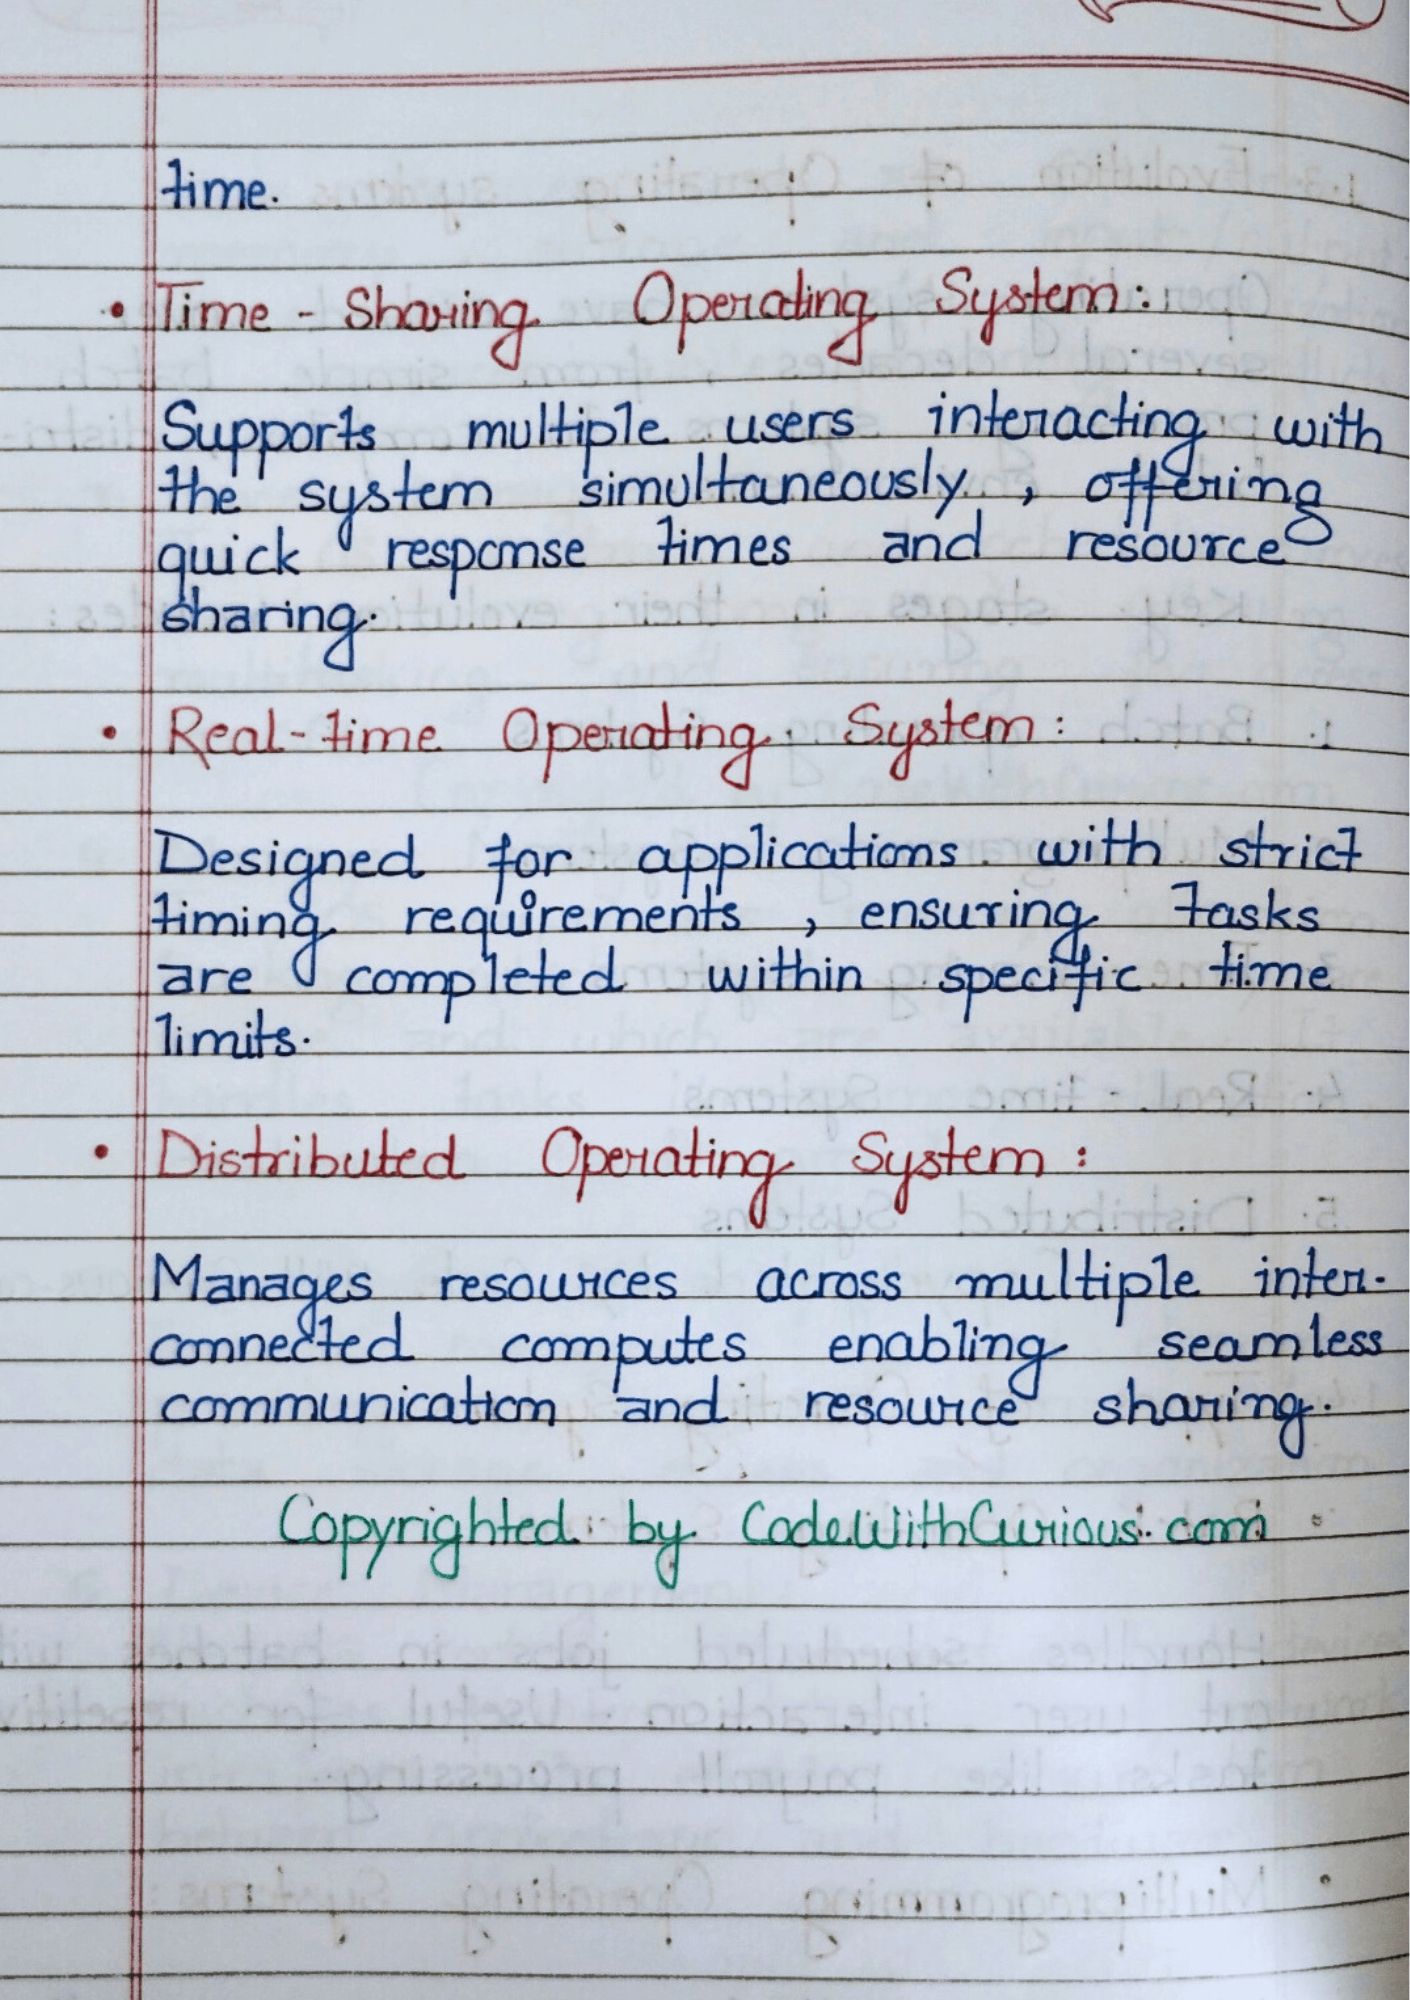 time.
• Time - Sharing Operating System :
Supports multiple users interacting with
the system simultaneously , offering
quick response times and resource
sharing.
• Real-time Operating System :
Designed for applications with strict
timing requirements , ensuring tasks
are completed within specific time
limits.
• Distributed Operating System :
Manages resources across multiple inter-
connected computes enabling seamless
communication and resource sharing.
Copyrighted by CodeWithCurious.com